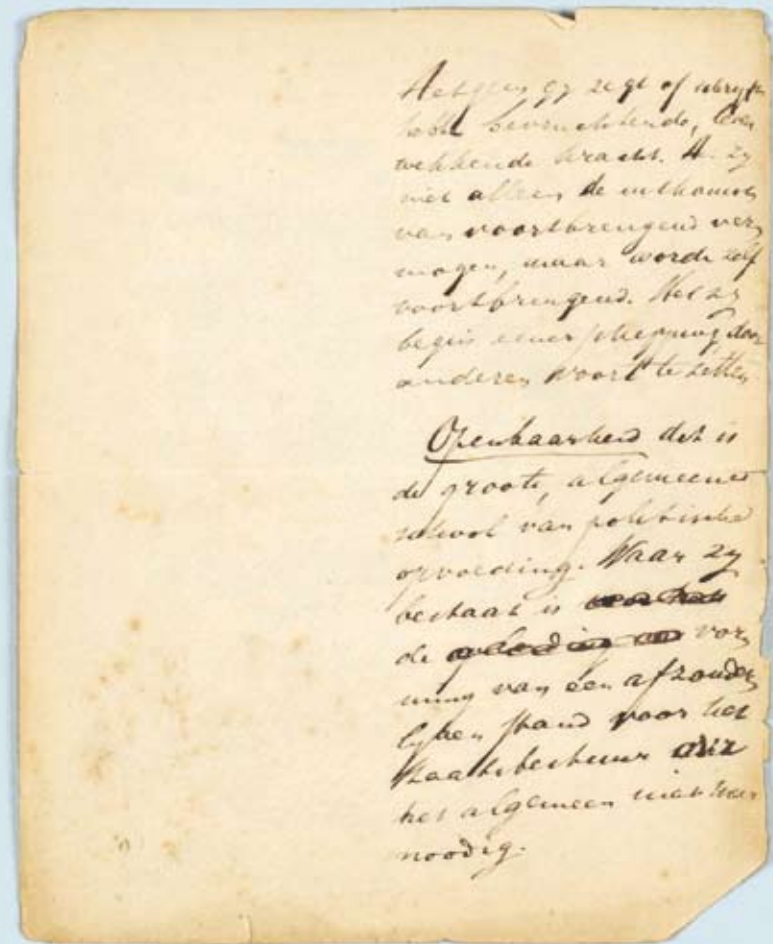 Hetgeen gy zegt of schryft
hebbe bevruchtende, leven
wekkende kracht. Het zy
niet alleen de uitkomst
van voortbrengend ver
mogen, maar worde zelf
voortbrengend. Het zy
begin eener schepping, door
anderen voort te zetten.
Openbaarheid dat is
de groote, algemeene
school van politische
opvoeding. Waar zy
bestaat is
de vor
ming van een afzonder
lyken stand voor het
Staatsbestuur in
het algemeen niet meer
noodig.